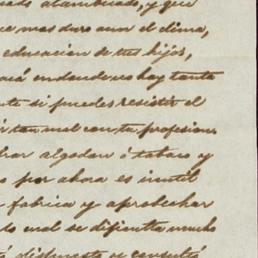 alambicado, y que
mas duro aun el clima,
educacion de tus hijos,
acá endenderes hay tanta
si puedes resistir el
tan mal con tu profesion
algodon ó tabaco y
por ahora es inutil
fabrica y aprobechar
lo cual se dificulta mucho
dispuesto se consultó